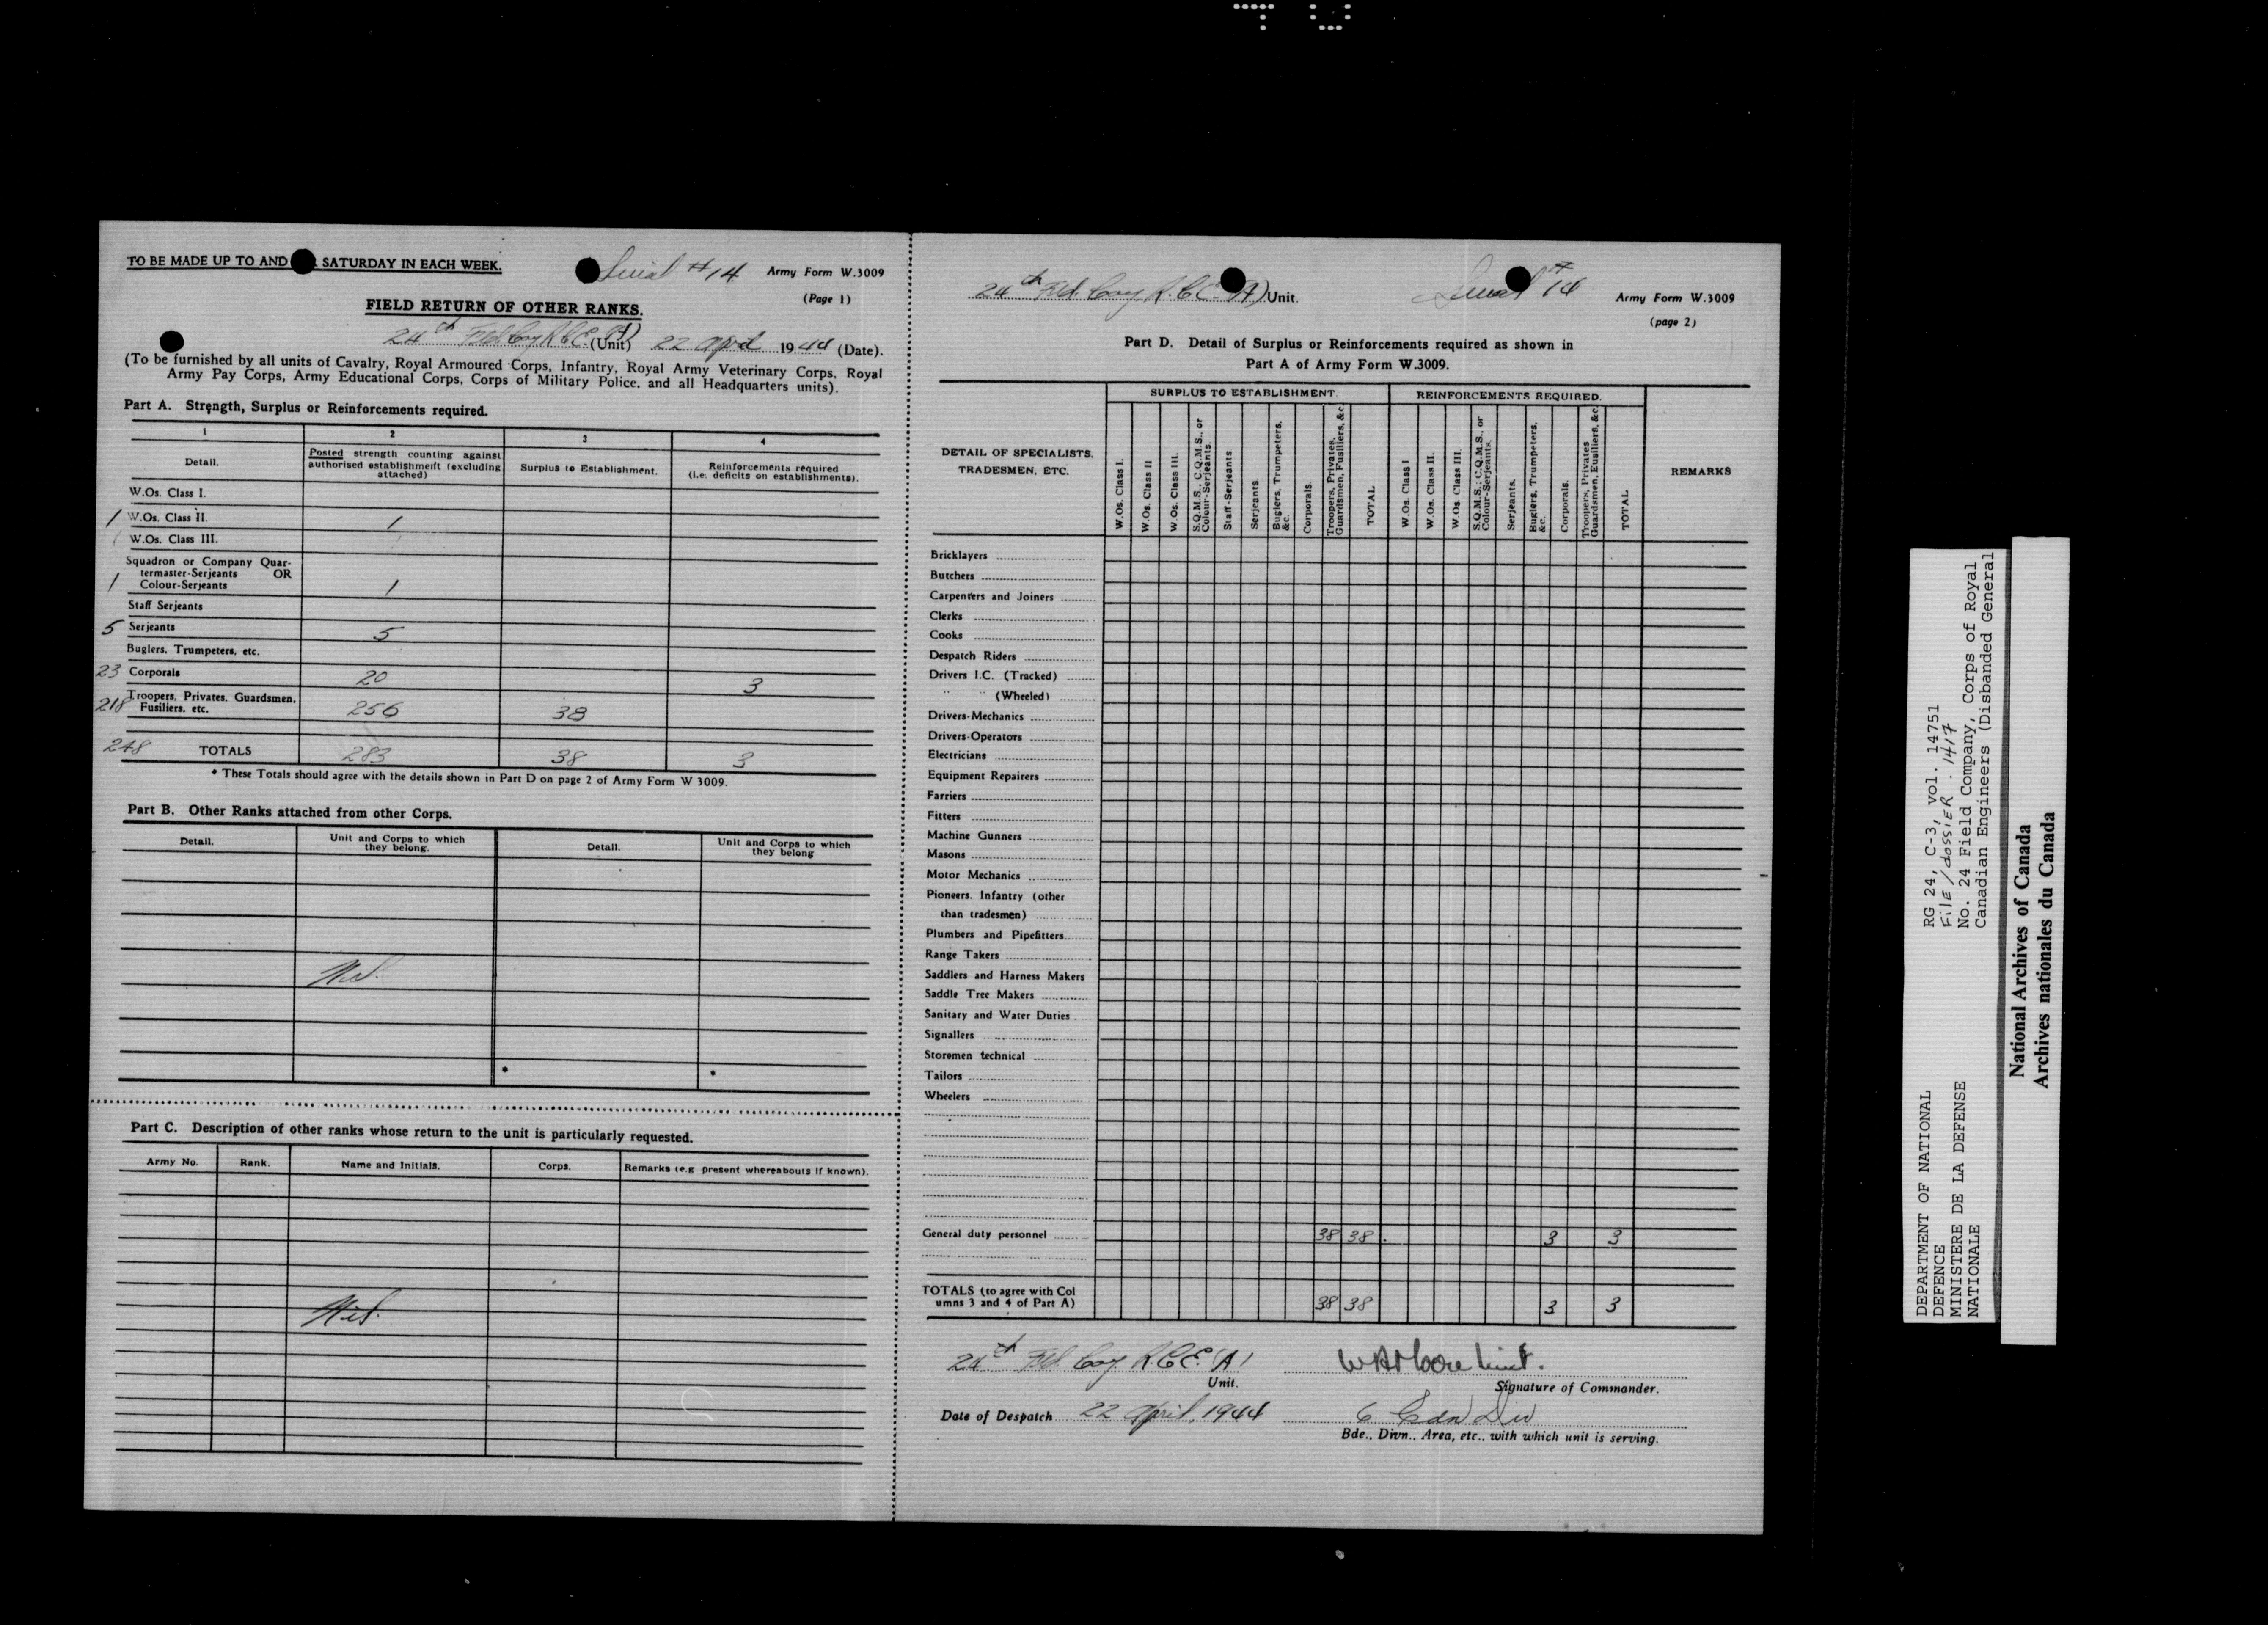 TO BE MADE UP TO AND SATURDAY IN EACH WEEK.
Serial #14 Army Form W.3009
(Page 1)
FIELD RETURN OF OTHER RANKS.
24th Fld. Coy R.C.E. (A) (Unit) 22 April 1944 (Date).
(To be furnished by all units of Cavalry, Royal Armoured Corps, Infantry, Royal Army Veterinary Corps, Royal
Army Pay Corps, Army Educational Corps, Corps of Military Police, and all Headquarters units).
Part A. Strength, Surplus or Reinforcements required.
1 2 3 4
Detail. Posted strength counting against authorised establishment (excluding attached) Surplus to Establishment. Reinforcements required (i.e. deficits on establishments).
W.Os. Class I.
1 W.Os. Class II. 1
W.Os. Class III.
Squadron or Company Quar-
termaster-Serjeants OR
1 Colour-Serjeants 1
Staff Serjeants
5 Serjeants 5
Buglers, Trumpeters, etc.
23 Corporals 20 3
218 Troopers, Privates, Guardsmen, Fusiliers, etc. 256 38
248 TOTALS 283 38 3
* These Totals should agree with the details shown in Part D on page 2 of Army Form W 3009.
Part B. Other Ranks attached from other Corps.
Detail. Unit and Corps to which they belong. Detail. Unit and Corps to which they belong
Nil.
* *
Part C. Description of other ranks whose return to the unit is particularly requested.
Army No. Rank. Name and Initials. Corps. Remarks (e.g present whereabouts if known).
Nil.
24th Fld. Coy R.C.E. (A) Unit. Serial #14 Army Form W.3009
(page 2)
Part D. Detail of Surplus or Reinforcements required as shown in
Part A of Army Form W.3009.
DETAIL OF SPECIALISTS, TRADESMEN, ETC.
SURPLUS TO ESTABLISHMENT.
W.Os. Class I.
W.Os. Class II
W.Os. Class III.
S.Q.M.S.; C.Q.M.S., or Colour-Serjeants.
Staff-Serjeants
Serjeants.
Buglers, Trumpeters, &c.
Corporals.
Troopers, Privates, Guardsmen, Fusiliers, &c.
TOTAL
REINFORCEMENTS REQUIRED.
W.Os. Class I
W.Os. Class II.
W.Os. Class III.
S.Q.M.S.; C.Q.M.S., or Colour-Serjeants.
Serjeants.
Buglers, Trumpeters, &c.
Corporals.
Troopers, Privates Guardsmen, Fusiliers, &c.
TOTAL
REMARKS
Bricklayers
Butchers
Carpenters and Joiners
Clerks
Cooks
Despatch Riders
Drivers I.C. (Tracked)
" " (Wheeled)
Drivers-Mechanics
Drivers-Operators
Electricians
Equipment Repairers
Farriers
Fitters
Machine Gunners
Masons
Motor Mechanics
Pioneers, Infantry (other
than tradesmen)
Plumbers and Pipefitters
Range Takers
Saddlers and Harness Makers
Saddle Tree Makers
Sanitary and Water Duties
Signallers
Storemen technical
Tailors
Wheelers
General duty personnel 38 38 3 3
TOTALS (to agree with Col
umns 3 and 4 of Part A) 38 38 3 3
24th Fld. Coy. R.C.E. (A) Unit.
W.H. Moore Lieut.
Signature of Commander.
Date of Despatch 22 April, 1944
6 Cdn Div
Bde., Divn., Area, etc., with which unit is serving.
DEPARTMENT OF NATIONAL
DEFENCE
MINISTERE DE LA DEFENSE
NATIONALE
RG 24, C-3, vol. 14751
FILE/dossier . 1417
No. 24 Field Company, Corps of Royal
Canadian Engineers (Disbanded General
National Archives of Canada
Archives nationales du Canada